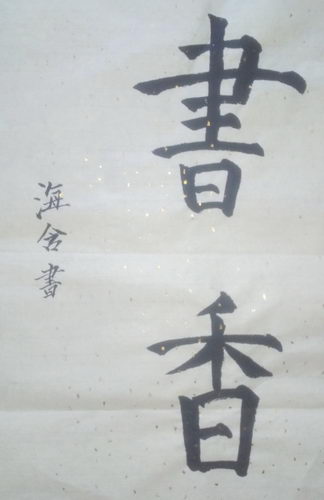 書香
海舍書